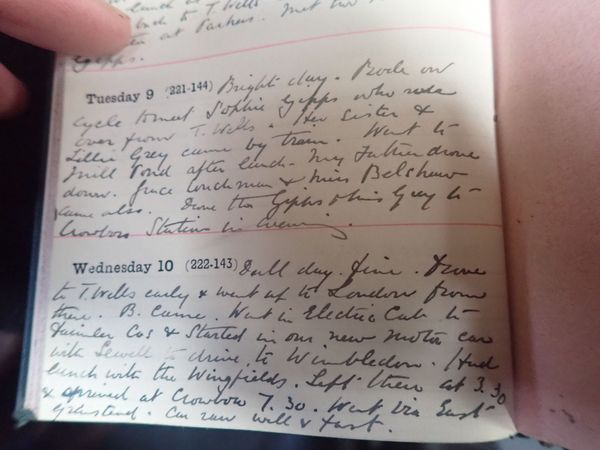 lunch at
back to T. Wells
at Parkers. Met two
Gipps.
Tuesday 9 (221-144) Bright day. Rode on
cycle to meet Sophie Gipps who rode
over from T. Wells. Her Sister &
Lillie Grey came by train. Went to
Mill Pond after lunch. My Father drove
down. Grace & Miss Belshaw
came also. Drove the Gipps & Miss Grey to
Crowboro Station in Evening.
Wednesday 10 (222-143) Dull day. fine. Drove
to T. Wells early & went up to London from
there. B. came. Went in Electric Cab to
Daimler Cos & Started in our new Motor car
with Sewell to drive, to Wimbledon. Had
lunch with the Wingfields. Left them at 3.30
& arrived at Crowboro 7.30. Went via East
Grinstead. Car ran well & fast.